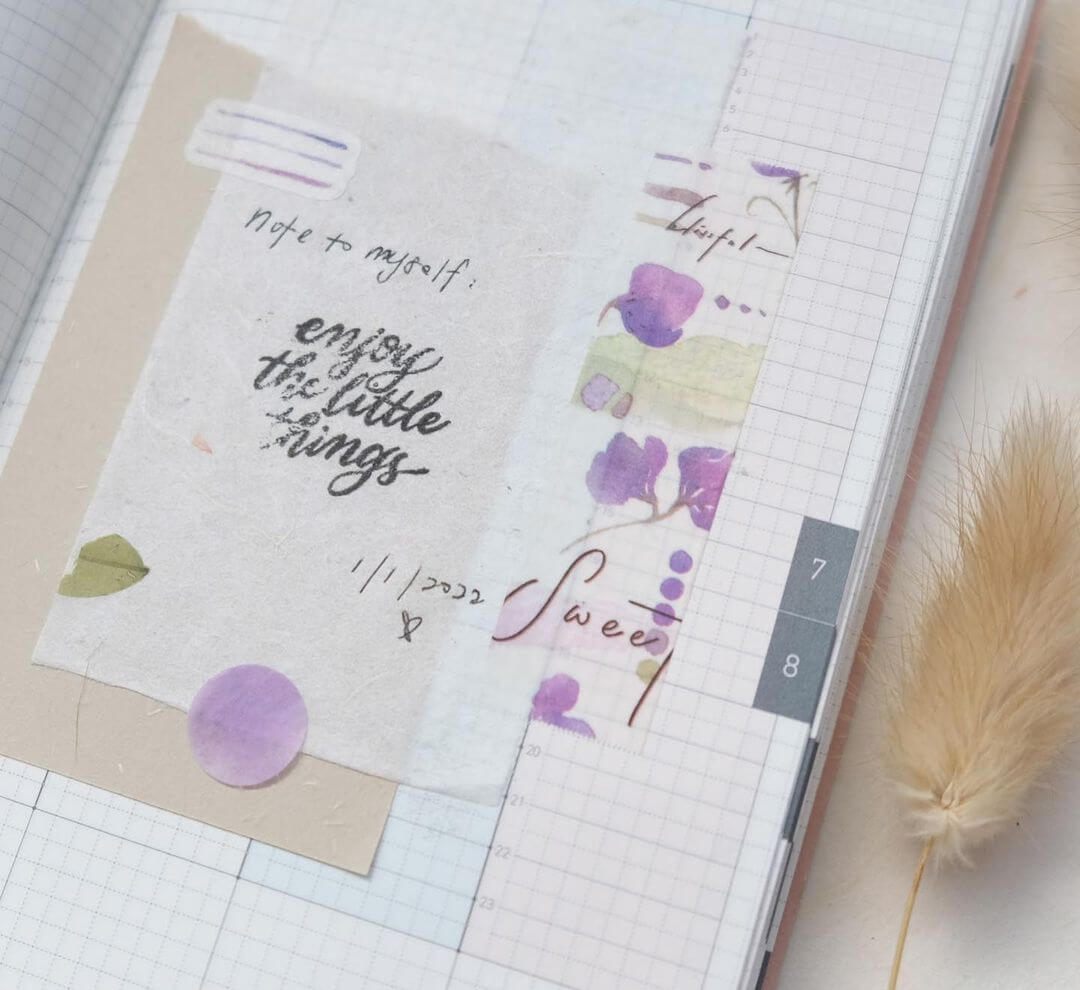 note to myself:
enjoy
the little
things
1/1/2022
blissful
Sweet
2
3
4
5
6
7
8
20
21
22
23